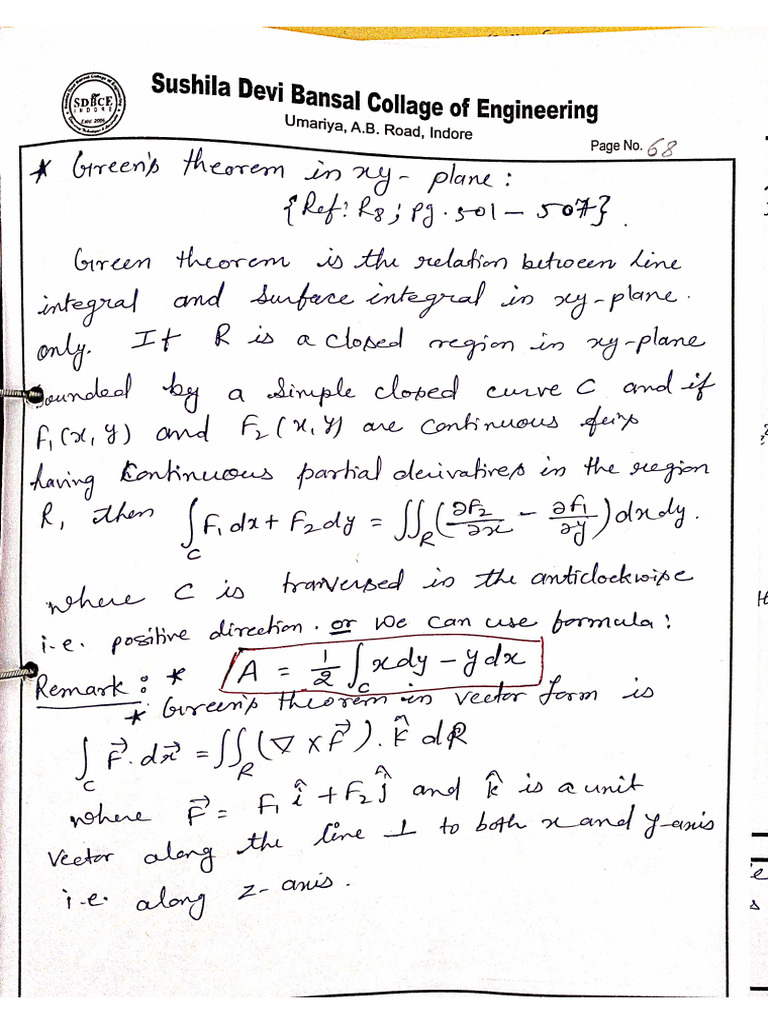 Sushila Devi Bansal Collage of Engineering
SDBCE
INDORE
Umariya, A.B. Road, Indore
Page No. 68
* Green's theorem in xy-plane:
{Ref: R8; pg. 501 - 507}.
Green theorem is the relation between line
integral and surface integral in xy-plane.
only. If R is a closed region in xy-plane
bounded by a simple closed curve C and if
F₁(x,y) and F₂(x,y) are continuous
having continuous partial derivatives in the region
R, then ∫_C F₁dx + F₂dy = ∬_R (∂F₂/∂x - ∂F₁/∂y) dxdy.
where C is tranversed in the anticlockwise
i.e. positive direction. or we can use formula:
Remark: * A = 1/2 ∫_C xdy - ydx
* Green's theorem in vector form is
∫_C F⃗.dx⃗ = ∬_R (∇ × F⃗). k̂ dR
where F⃗ = F₁ î + F₂ ĵ and k̂ is a unit
vector along the line ⊥ to both x and y-axis
i.e. along z-axis.